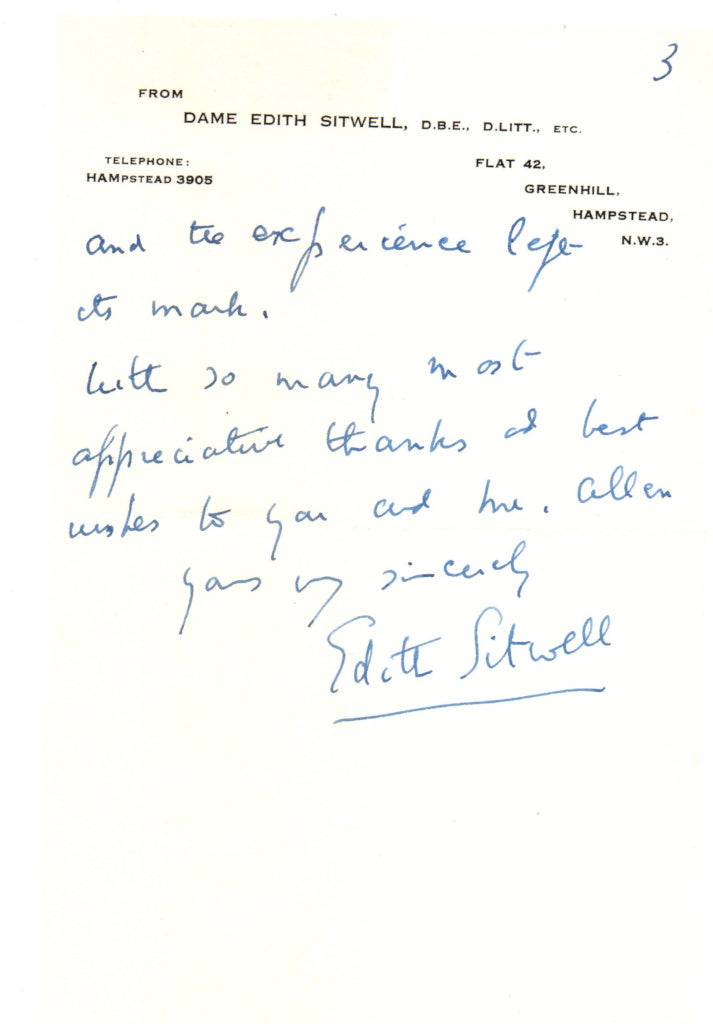 3
FROM
DAME EDITH SITWELL, D.B.E., D.LITT., ETC.
TELEPHONE:
HAMPSTEAD 3905
FLAT 42,
GREENHILL,
HAMPSTEAD,
N.W.3.
and the experience left
its mark.
With so many most
appreciative thanks and best
wishes to you and Mr. Allen
yours very sincerely
Edith Sitwell